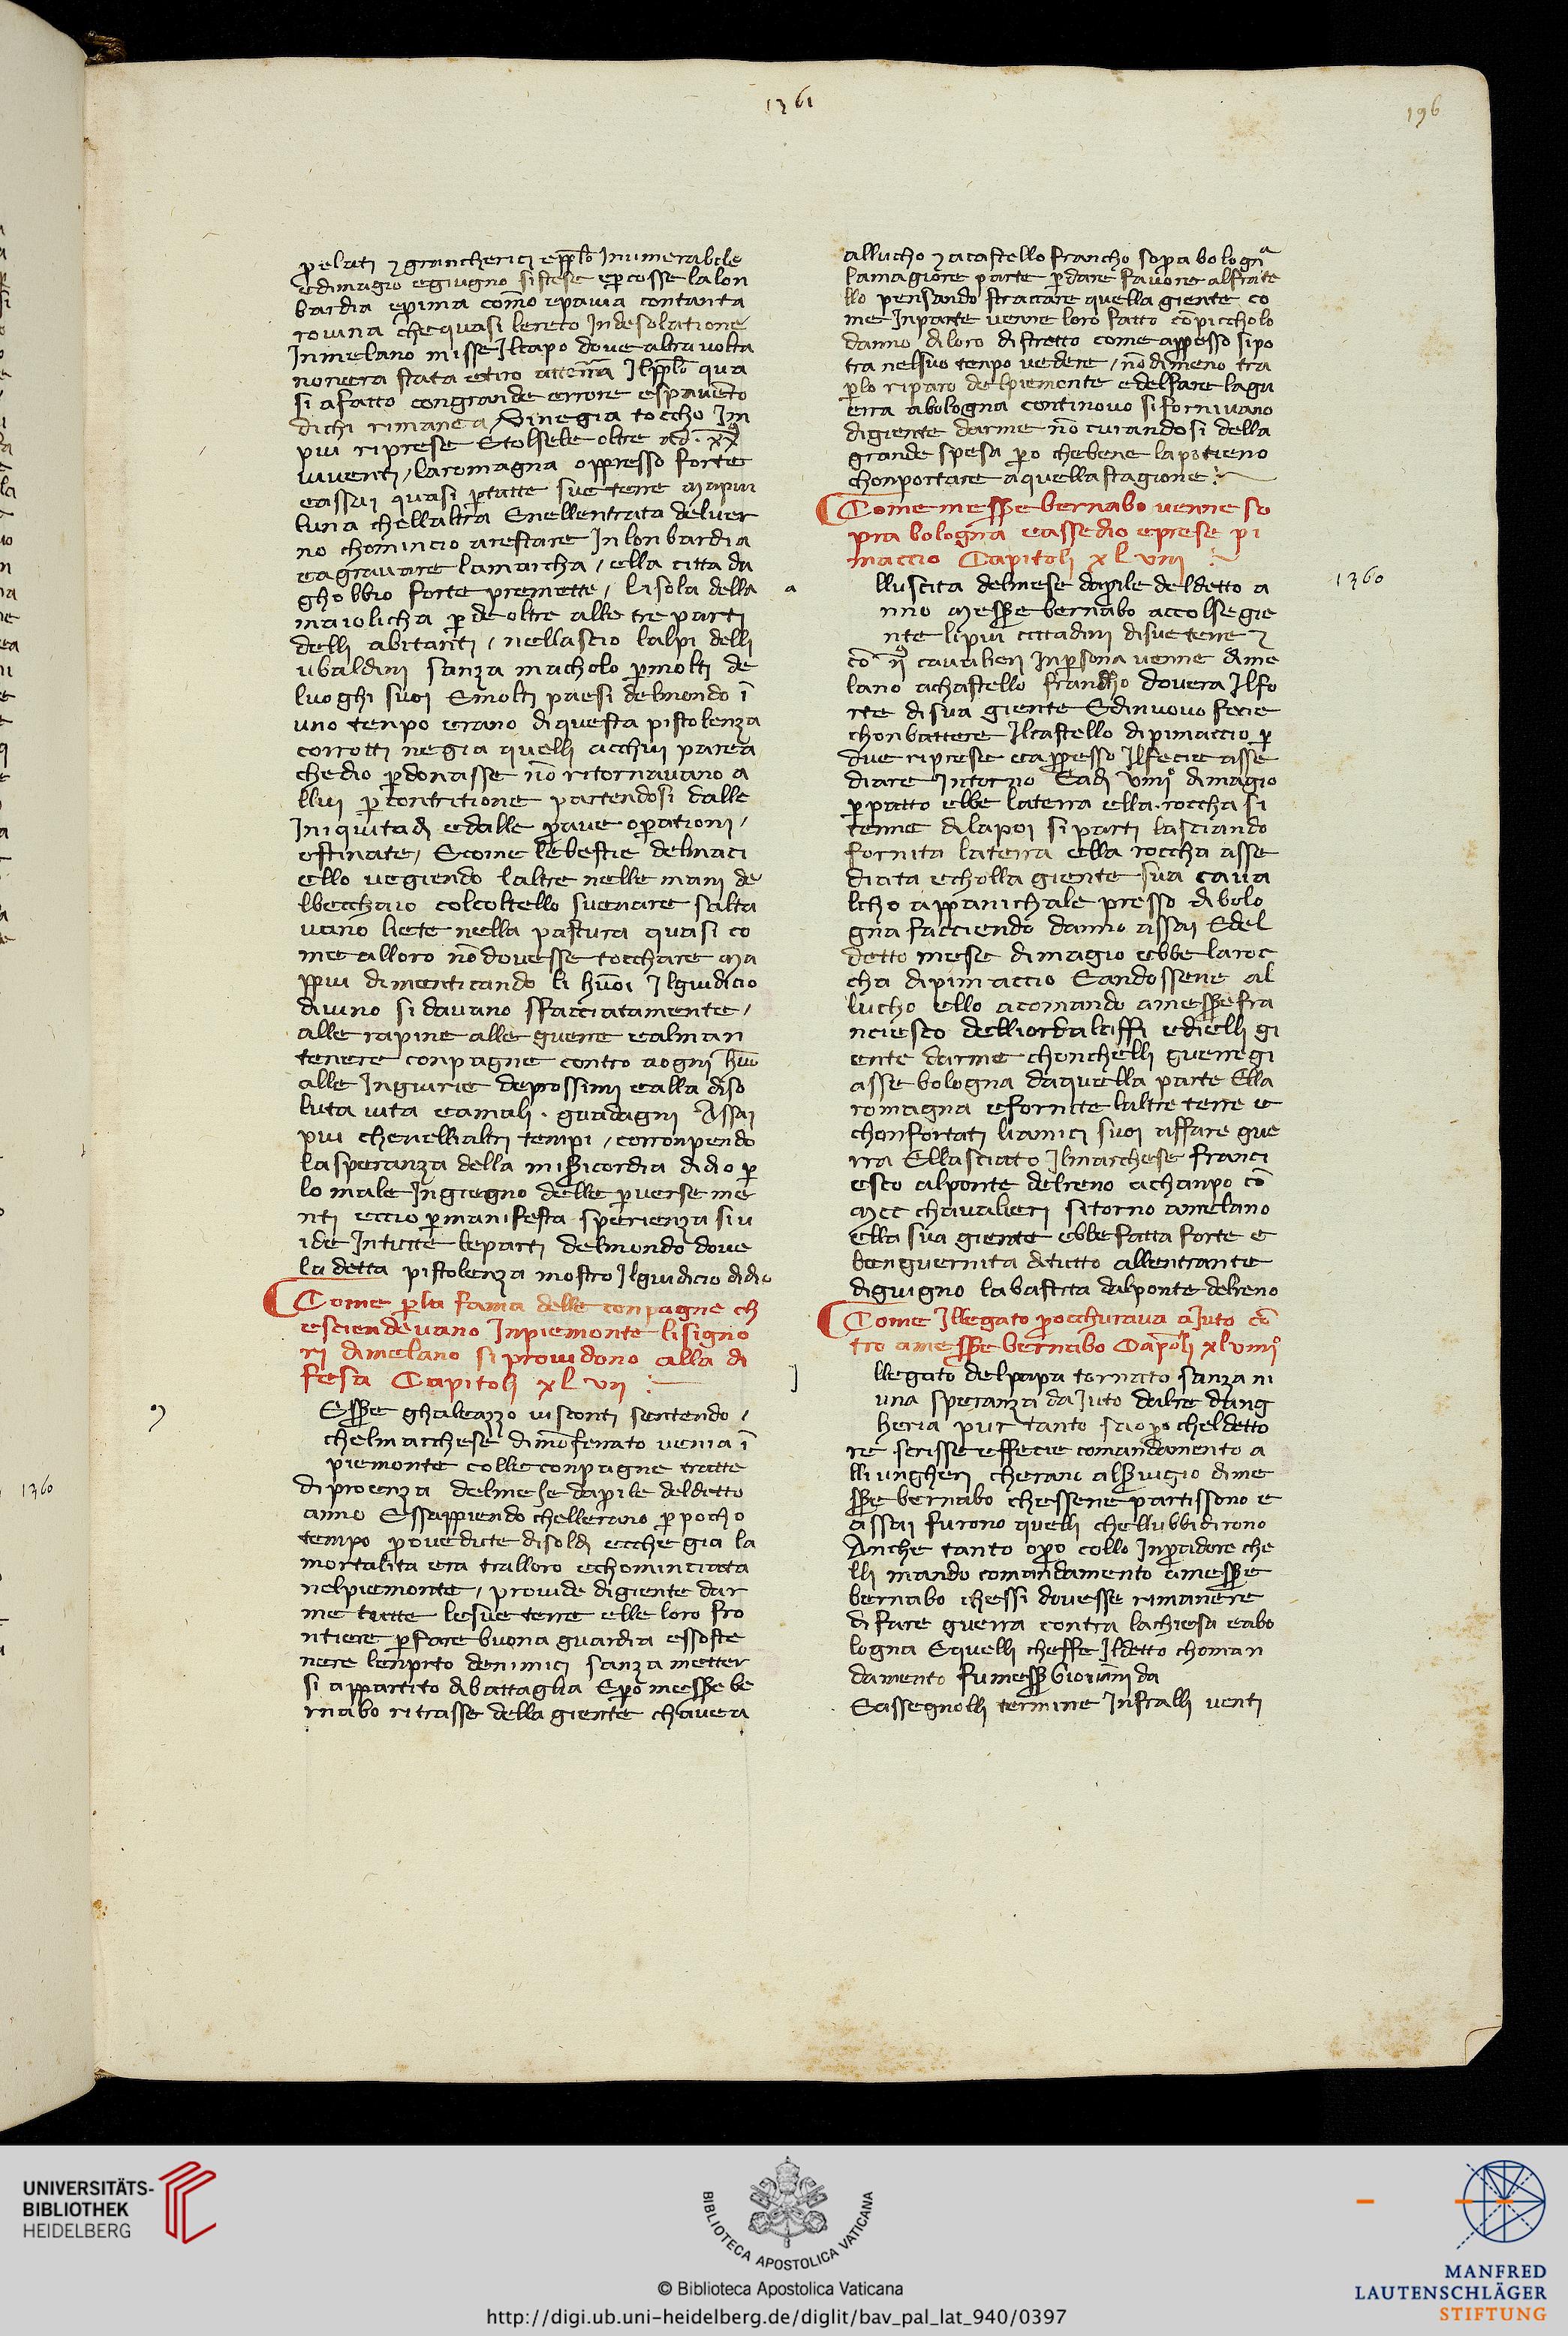 1361
196
p̱elati ⁊ grancherici epp̱lo Inumerabile
edimagio egiugno sistese ep̱cosse lalon
bardia ep̱ima como epauia contanta
rouina chequasi lereco Indesolatione
Inmelano misse Ilcapo dove altra volta
nonera stata etiro atterra Ilpp̱lo qua
si afatto congrande errore espauento
dichi rimanea Vinegia toccho Im
piu riprese Etolsele oltre ad xx̊
viventi / laromagna oppresso forte
eassai quasi p̱tutte sue terre mapiu
luna chellaltra Enellentrata delver
no chomincio arestare Inlonbardia
eagrauare lamarcha / ella citta da
ghobbio forte premette / Lisola della
maiolicha p̱de oltre alle tre parti
delli abitanti / nellascio lalpi delli
ubaldini sanza macholo p̱molti de
luoghi suoi Emolti paesi delmondo ī
uno tenpo erano diquesta pistolenza
corrotti negia quelli acchui parea
chedio p̱donasse nō ritornauano a
llui p̱ contritione partendosi dalle
Iniquitadi edalle p̱aue op̱ationi /
ostinate / Ecome lebestie delmaci
ello vegiendo laltre nelle mani de
lbecchaio colcoltello suenare salta
uano liete nella pastura quasi co
me alloro nō dovesse tocchare ma
ppiu dimenticando li huōi Ilgiudicio
diuino si dauano sfacciatamente /
alle rapine alle guerre ealman
tenere conpagne contro aogni huō
alle Ingiurie deprossimi ealla diso
luta uita eamali · guadagni Assai
piu chenelli altri tempi / corronpendo
lasperanza della misīcordia didio p̱
lo male Ingiegno delle p̱verse me
nti eccio p̱manifesta sperienza siu
ide Intutte leparti delmondo dove
la detta pistolenza mostro Ilgiudicio didio
Come p̱la fama delle conpagne ch
esciendevano Inpiemonte lisigno
ri dimelano si prouidono alla di
fesa Capitoli xl vij :
Esse ghaleazzo uisconti sentendo /
chelmarchese dimōferrato venia ī
piemonte colle conpagne tratte
diproenza delmese dap̱ile deldetto
anno Essappiendo chellerano p̱ pocho
tempo p̱ovedute disoldi ecche gia la
mortalita era tralloro echominciata
nelpiemonte / provide digiente dar
me tutte lesue terre elle loro fro
ntiere p̱fare buona guardia essoste
nere lenpito denimici sanza metter
si appartito dibattaglia Ep̱o messe be
rnabo ritrasse della giente chavera
allucho ⁊ acastello francho sop̱a bologna
lamagiore parte p̱dare fauore alfrate
llo pensando straccare quella giente co
me Inparte venne loro fatto cō picciolo
danno diloro distretto come appresso sipo
tra nelsuo tenpo vedere / nō dimeno tra
p̱lo riparo delpiemonte edelfare lagu
erra abologna continouo sifornivano
digiente darme nō curandosi della
grande spesa p̱o chebene lapotieno
chonportare aquella stagione :
Come messe bernabo venne so
pra bologna eassedio eprese pi
maccio Capitoli xl viij :
lluscita delmese dap̱ile deldetto a
nno messe bernabo accolse gie
nte lipiu cittadini disue terre ⁊
cō cavalieri Inp̱sona venne dime
lano achastello francho dovera Ilfo
rte disua giente Edinuovo fecie
chonbattere Ilcastello dipimaccio p̱
due riprese eap̱esso Ilfecie asse
diare Intorno Eadi viiij dimagio
p̱patto ebbe laterra ella roccha si
tenne dilapoi si parti lasciando
fornita laterra ella roccha asse
diata echolla giente sua caua
lcho appanichale presso dibolo
gna facciendo danno assai Edel
detto mese dimagio ebbe laroc
cha dipimaccio Eandossene al
lucho ello acomando amesse fra
nciesco delliordalaffi edielli gi
ente darme chonchelli guerregi
asse bologna daquella parte Ella
romagna efornite laltre terre e
chonfortati liamici suoi affare gue
rra Ellasciato Ilmarchese franci
esco alponte delreno achanpo cō
mcc chavalieri sitorno amelano
ella sua giente ebbe fatta forte e
benguernita ditutto allentrante
digiugno labastita dalponte delreno
Come Illegato p̱occhuraua aiuto cō
tro amesse bernabo Capoli xlviiij
llegato delpapa tornato sanza ni
una speranza daiuto delre dung
heria pur tanto cheldetto
re scrisse effecie comandamento a
lliungheri cherano alseruigio dime
sse bernabo chessene partissono e
assai furono quelli chellubbidirono
Anche tanto op̱o collo Inp̱adore che
lli mando comandamento amesse
bernabo chessi dovesse rimanere
di fare guerra contra lachiesa eabo
logna Equelli cheffe Ildetto choman
damento fumesse Giovāni da
Eassegnolli termine Infralli venti
1360
1360
a
UNIVERSITÄTS-
BIBLIOTHEK
HEIDELBERG
BIBLIOTECA APOSTOLICA VATICANA
© Biblioteca Apostolica Vaticana
http://digi.ub.uni-heidelberg.de/diglit/bav_pal_lat_940/0397
MANFRED
LAUTENSCHLÄGER
STIFTUNG